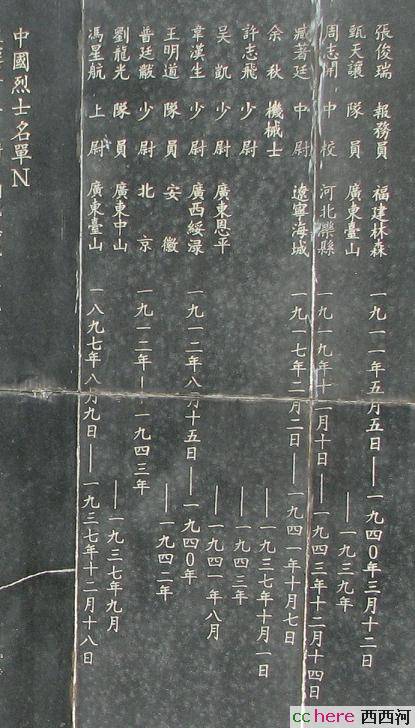 張俊瑞 報務員 福建林森 一九一一年五月五日——一九四0年三月十二日
甄天讓 隊員 廣東臺山 ——一九三九年
周志開 中校 河北灤縣 一九一九年十一月十日——一九四三年十二月十四日
臧著廷 中尉 遼寧海城 一九一七年二月二日——一九四一年十月七日
余秋 機械士 ——一九三七年十月一日
許志飛 少尉 ——一九四三年
吴凱 少尉 廣東恩平 ——一九四一年八月
章漢生 少尉 廣西綏渌 一九一二年八月十五日——一九四0年
王明道 隊員 安徽 ——一九四二年
普廷黻 少尉 北京 一九一二年——一九四三年
劉龍光 隊員 廣東中山 ——一九三七年九月
馮星航 上尉 廣東臺山 一八九七年八月九日——一九三七年十二月十八日
中國烈士名單N
cchere 西西河